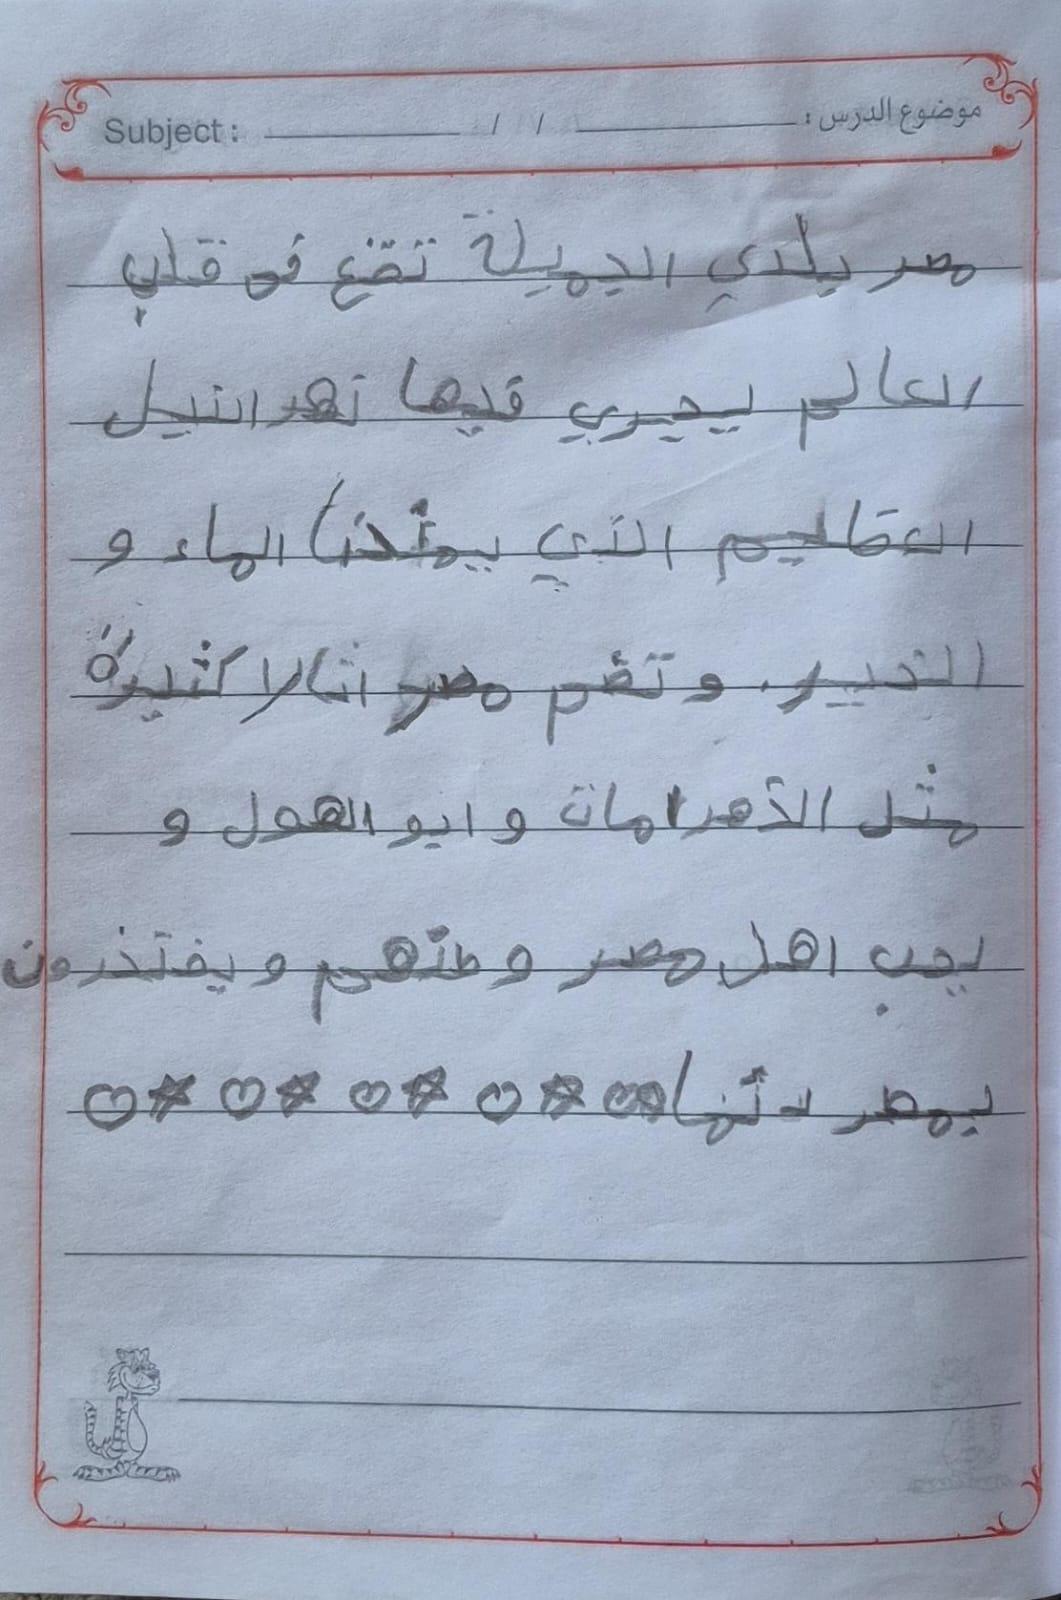 موضوع الدرس : / / Subject :
مصر بلدي الجميلة تقع في قلب
العالم يجري فيها نهر النيل
العظيم الذي يمنحنا الماء و
الخير. وتضم مصر اثارا كثيرة
مثل الأهرامات و ابو الهول و
يحب اهل مصر وطنهم ويفتخرون
بمصر